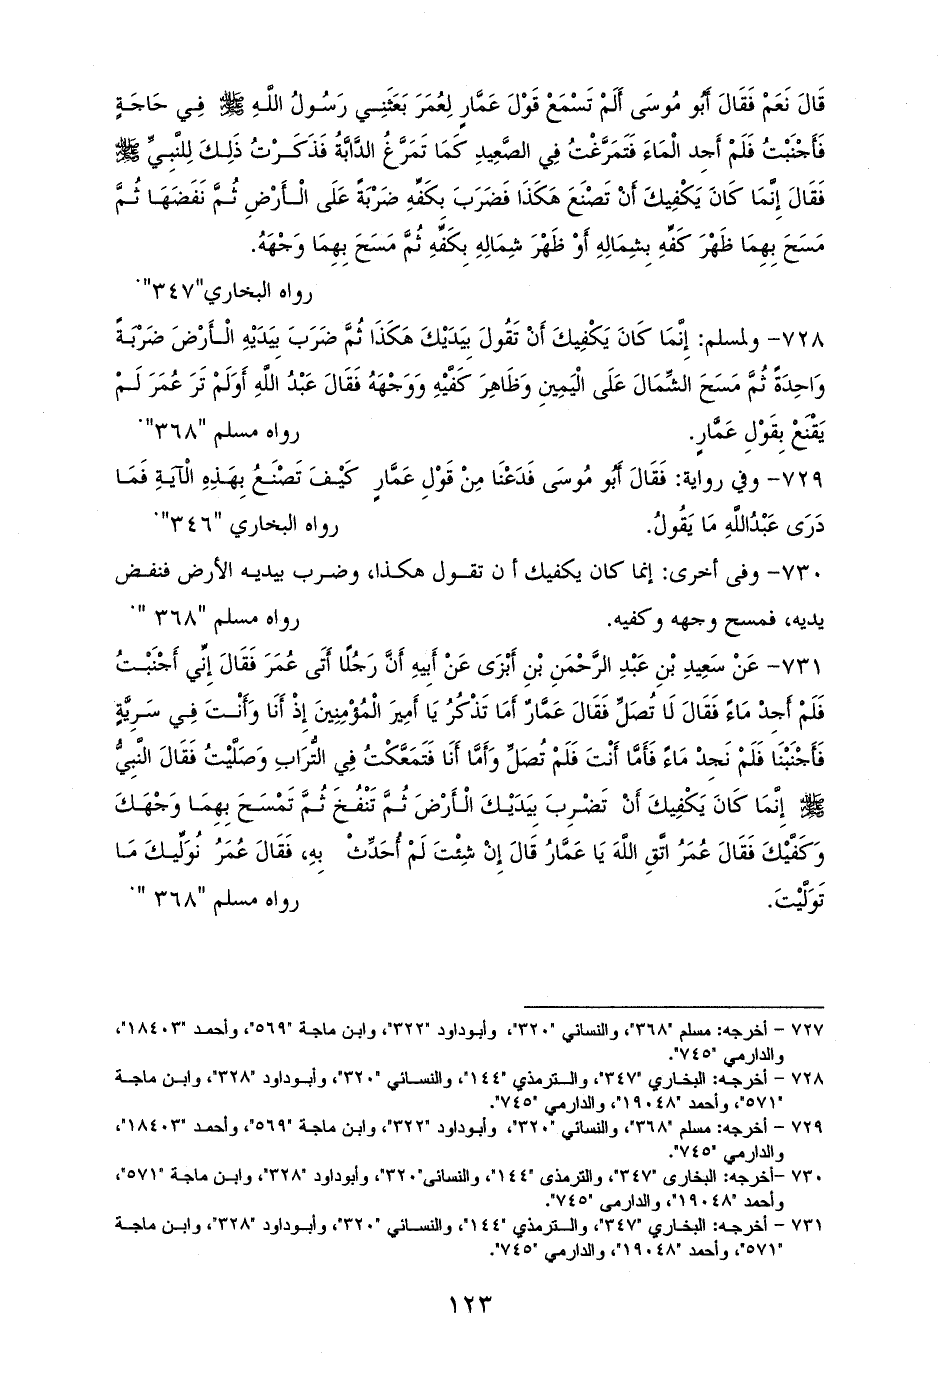 قَالَ نَعَمْ فَقَالَ أَبُو مُوسَى أَلَمْ تَسْمَعْ قَوْلَ عَمَّارٍ لِعُمَرَ بَعَثَنِي رَسُولُ اللَّهِ ﷺ فِي حَاجَةٍ
فَأَجْنَبْتُ فَلَمْ أَجِدِ الْمَاءَ فَتَمَرَّغْتُ فِي الصَّعِيدِ كَمَا تَمَرَّغُ الدَّابَّةُ فَذَكَرْتُ ذَلِكَ لِلنَّبِيِّ ﷺ
فَقَالَ إِنَّمَا كَانَ يَكْفِيكَ أَنْ تَصْنَعَ هَكَذَا فَضَرَبَ بِكَفِّهِ ضَرْبَةً عَلَى الْأَرْضِ ثُمَّ نَفَضَهَا ثُمَّ
مَسَحَ بِهِمَا ظَهْرَ كَفِّهِ بِشِمَالِهِ أَوْ ظَهْرَ شِمَالِهِ بِكَفِّهِ ثُمَّ مَسَحَ بِهِمَا وَجْهَهُ.
رواه البخاري"٣٤٧".
٧٢٨- ولمسلم: إِنَّمَا كَانَ يَكْفِيكَ أَنْ تَقُولَ بِيَدَيْكَ هَكَذَا ثُمَّ ضَرَبَ بِيَدَيْهِ الْأَرْضَ ضَرْبَةً
وَاحِدَةً ثُمَّ مَسَحَ الشِّمَالَ عَلَى الْيَمِينِ وَظَاهِرَ كَفَّيْهِ وَوَجْهَهُ فَقَالَ عَبْدُ اللَّهِ أَوَلَمْ تَرَ عُمَرَ لَمْ
يَقْنَعْ بِقَوْلِ عَمَّارٍ. رواه مسلم "٣٦٨".
٧٢٩- وفي رواية: فَقَالَ أَبُو مُوسَى فَدَعْنَا مِنْ قَوْلِ عَمَّارٍ كَيْفَ تَصْنَعُ بِهَذِهِ الْآيَةِ فَمَا
دَرَى عَبْدُاللَّهِ مَا يَقُولُ. رواه البخاري "٣٤٦".
٧٣٠- وفى أخرى: إنما كان يكفيك أ ن تقول هكذا، وضرب بيديه الأرض فنفض
يديه، فمسح وجهه وكفيه. رواه مسلم "٣٦٨ ".
٧٣١- عَنْ سَعِيدِ بْنِ عَبْدِ الرَّحْمَنِ بْنِ أَبْزَى عَنْ أَبِيهِ أَنَّ رَجُلًا أَتَى عُمَرَ فَقَالَ إِنِّي أَجْنَبْتُ
فَلَمْ أَجِدْ مَاءً فَقَالَ لَا تُصَلِّ فَقَالَ عَمَّارٌ أَمَا تَذْكُرُ يَا أَمِيرَ الْمُؤْمِنِينَ إِذْ أَنَا وَأَنْتَ فِي سَرِيَّةٍ
فَأَجْنَبْنَا فَلَمْ نَجِدْ مَاءً فَأَمَّا أَنْتَ فَلَمْ تُصَلِّ وَأَمَّا أَنَا فَتَمَعَّكْتُ فِي التُّرَابِ وَصَلَّيْتُ فَقَالَ النَّبِيُّ
ﷺ إِنَّمَا كَانَ يَكْفِيكَ أَنْ تَضْرِبَ بِيَدَيْكَ الْأَرْضَ ثُمَّ تَنْفُخَ ثُمَّ تَمْسَحَ بِهِمَا وَجْهَكَ
وَكَفَّيْكَ فَقَالَ عُمَرُ اتَّقِ اللَّهَ يَا عَمَّارُ قَالَ إِنْ شِئْتَ لَمْ أُحَدِّثْ بِهِ، فَقَالَ عُمَرُ نُوَلِّيكَ مَا
تَوَلَّيْتَ. رواه مسلم "٣٦٨ ".
٧٢٧ - أخرجه: مسلم "٣٦٨"، والنسائي "٣٢٠"، وأبوداود "٣٢٢"، وابن ماجة "٥٦٩"، وأحمد "١٨٤٠٣"،
والدارمي "٧٤٥".
٧٢٨ - أخرجه: البخاري "٣٤٧"، والترمذي "١٤٤"، والنسائي "٣٢٠"، وأبوداود "٣٢٨"، وابن ماجة
"٥٧١"، وأحمد "١٩٠٤٨"، والدارمي "٧٤٥".
٧٢٩ - أخرجه: مسلم "٣٦٨"، والنسائي "٣٢٠"، وأبوداود "٣٢٢"، وابن ماجة "٥٦٩"، وأحمد "١٨٤٠٣"،
والدارمي "٧٤٥".
٧٣٠ -أخرجه: البخارى "٣٤٧"، والترمذى "١٤٤"، والنسائى"٣٢٠"، وأبوداود "٣٢٨"، وابن ماجة "٥٧١"،
وأحمد "١٩٠٤٨"، والدارمي "٧٤٥".
٧٣١ - أخرجه: البخاري "٣٤٧"، والترمذي "١٤٤"، والنسائي "٣٢٠"، وأبوداود "٣٢٨"، وابن ماجة
"٥٧١"، وأحمد "١٩٠٤٨"، والدارمي "٧٤٥".
١٢٣